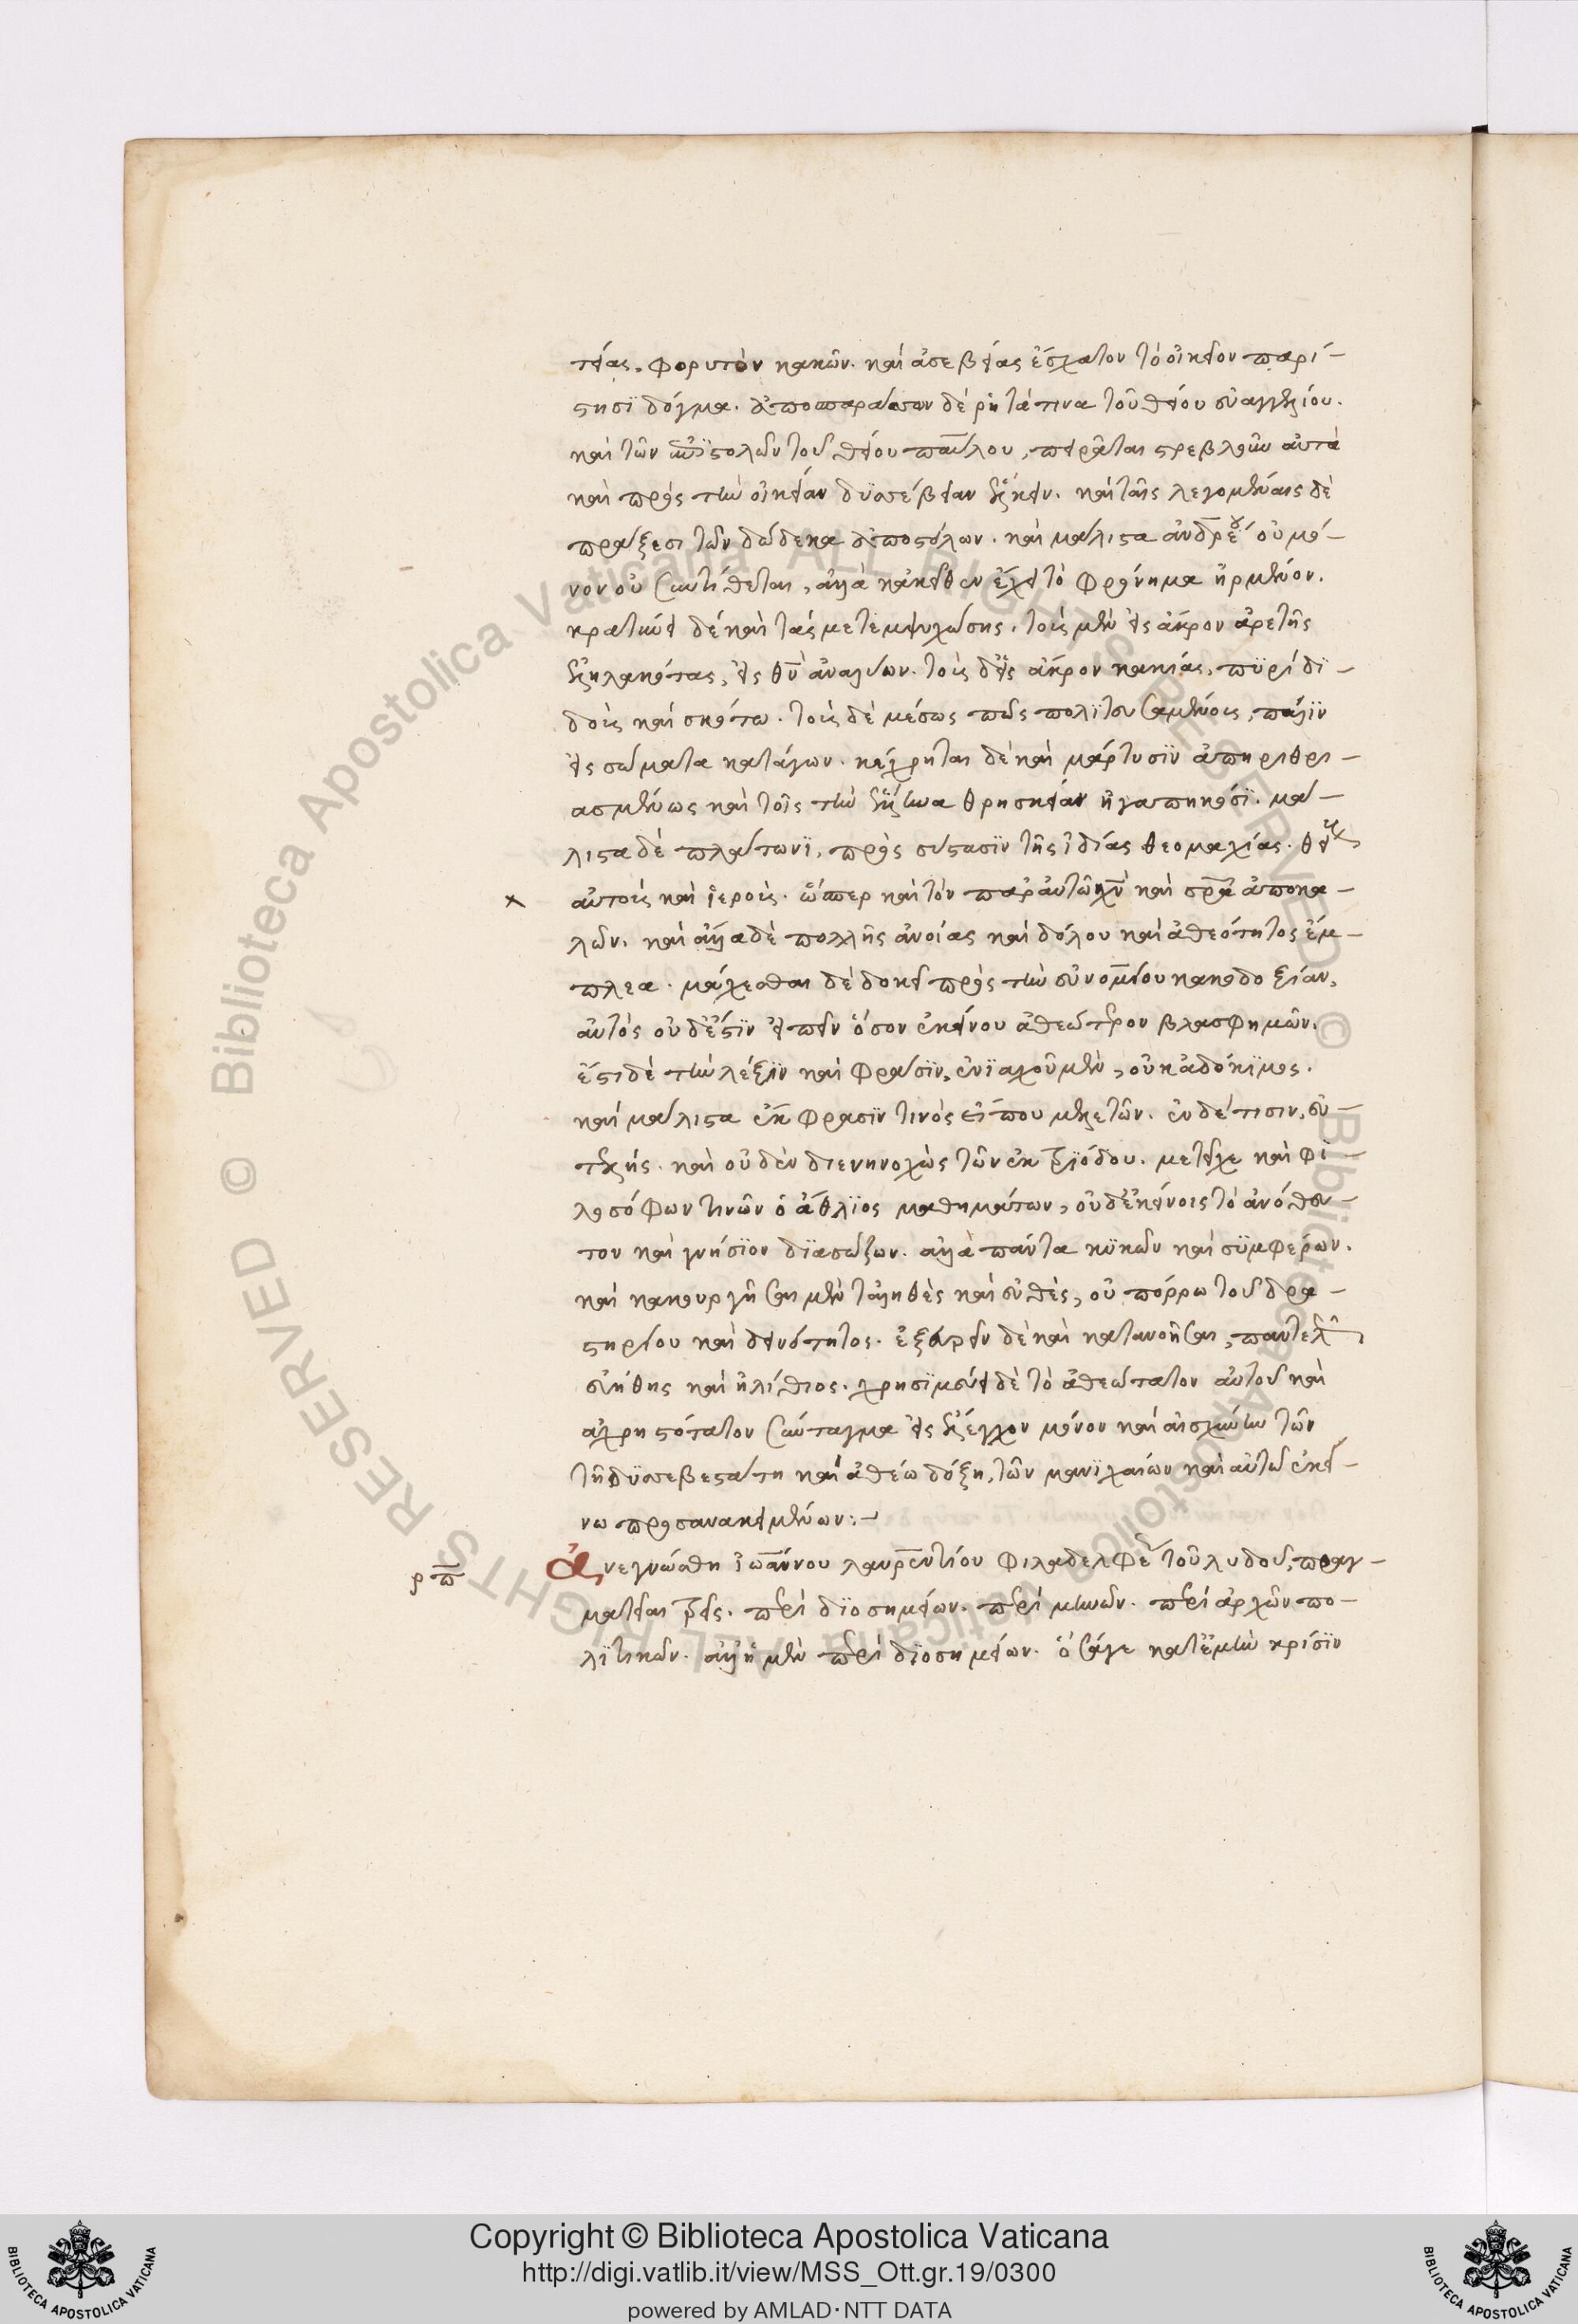 τείας. φορυτὸν κακῶν. καὶ ἀσεβείας ἔσχατον τὸ οἰκεῖον παρί-
στησι δόγμα. ἀποσπαράσσων δὲ ῥητά τινα τοῦ θείου εὐαγγελίου.
καὶ τῶν ἐπιστολῶν τοῦ θείου παύλου, πειρᾶται στρεβλοῦν αὐτὰ
καὶ πρὸς τὴν οἰκείαν δυσσέβειαν ἕλκειν. καὶ ταῖς λεγομέναις δὲ
πράξεσι τῶν δώδεκα ἀποστόλων. καὶ μάλιστα ἀνδρέου οὐ μό-
νον οὐ συντίθεται, ἀλλὰ κἀκεῖθεν ἔχει τὸ φρόνημα ἠρμένον.
κρατύνει δὲ καὶ τὰς μετεμψυχώσεις. τοὺς μὲν εἰς ἄκρον ἀρετῆς
ἐληλακότας, εἰς θν ἀναλύων. τοὺς δ' εἰς ἄκρον κακίας, πυρὶ δι-
δοὺς καὶ σκότω. τοὺς δὲ μέσως πως πολιτευσαμένους, πάλιν
εἰς σώματα κατάγων. κέχρηται δὲ καὶ μάρτυσιν ἀπηρυθρι-
ασμένως καὶ τοῖς τὴν ἕλληνα θρησκείαν ἠγαπηκόσι. μά-
λιστα δὲ πλάτωνι, πρὸς σύστασιν τῆς ἰδίας θεομαχίας.
αὐτοῖς καὶ ἱεροῖς. ὥσπερ καὶ τὸν παρ' αὐτῶ χν καὶ σρα ἀποκα-
λῶν. καὶ ἄλλα δὲ πολλῆς ἀνοίας καὶ δόλου καὶ ἀθεότητος ἔμ-
πλεα. μάχεσθαι δὲ δοκεῖ πρὸς τὴν εὐνομίου κακοδοξίαν,
αὐτὸς οὐδ' ἔστιν εἰπεῖν ὅσον ἐκείνου ἀθεώτερον βλασφημῶν.
ἔστι δὲ τὴν λέξιν καὶ φράσιν, ἐνιαχοῦ μὲν, οὐκ ἀδόκιμος.
καὶ μάλιστα ἔκφρασιν τινὸς εἴ που μελετῶν. ἐν δέ τισιν, εὐ-
τελής. καὶ οὐδὲν διενηνοχὼς τῶν ἐκ τριόδου. μετεῖχε καὶ φι-
λοσόφων τινῶν ὁ ἄθλιος μαθημάτων, οὐδ' ἐκείνοις τὸ ἀνόθευ-
τον καὶ γνήσιον διασώζων. ἀλλὰ πάντα κυκῶν καὶ συμφέρων.
καὶ κακουργῆσαι μὲν τἀληθὲς καὶ εὐθὲς, οὐ πόρρω τοῦ δρα-
στηρίου καὶ δεινότητος. ἐξευρεῖν δὲ καὶ κατανοῆσαι, παντελῶς
εὐήθης καὶ ἠλίθιος. χρησιμεύει δὲ τὸ ἀθεώτατον αὐτοῦ καὶ
ἀχρηστότατον σύνταγμα εἰς ἔλεγχον μόνον καὶ αἰσχύνην τῶν
τῆ δυσσεβεστάτη καὶ ἀθέω δόξη, τῶν μανιχαίων καὶ αὐτῶ ἐκεί-
νω προσανακειμένων:-
ρπ
Ἀνεγνώσθη ἰωάννου λαυρεντίου φιλαδελφέως τοῦ λυδοῦ, πραγ-
ματεῖαι τρεῖς. περὶ διοσημειῶν. περὶ μηνῶν. περὶ ἀρχῶν πο-
λιτικῶν. ἀλλ' ἡ μὲν περὶ διοσημειῶν. ὅσά γε κατ' ἐμὴν κρίσιν
Copyright © Biblioteca Apostolica Vaticana
http://digi.vatlib.it/view/MSS_Ott.gr.19/0300
powered by AMLAD·NTT DATA